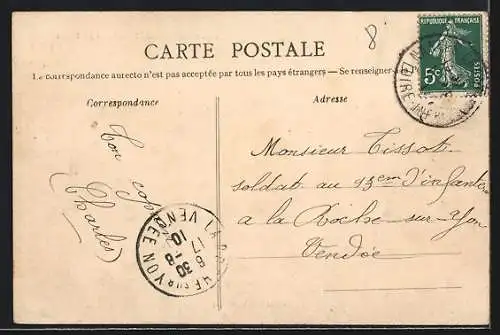 8
CARTE POSTALE
La correspondance au recto n'est pas acceptée par tous les pays étrangers — Se renseigner
Correspondance
Adresse
REPUBLIQUE FRANÇAISE
5c
POSTES
LOIRE-INFRE
Ton
Charles
Monsieur Tissot
soldat au 93em d'infanter
a la Roche-sur-Yon
Vendée
LA ROCHE SUR YON
VENDÉE
17
30-8
10